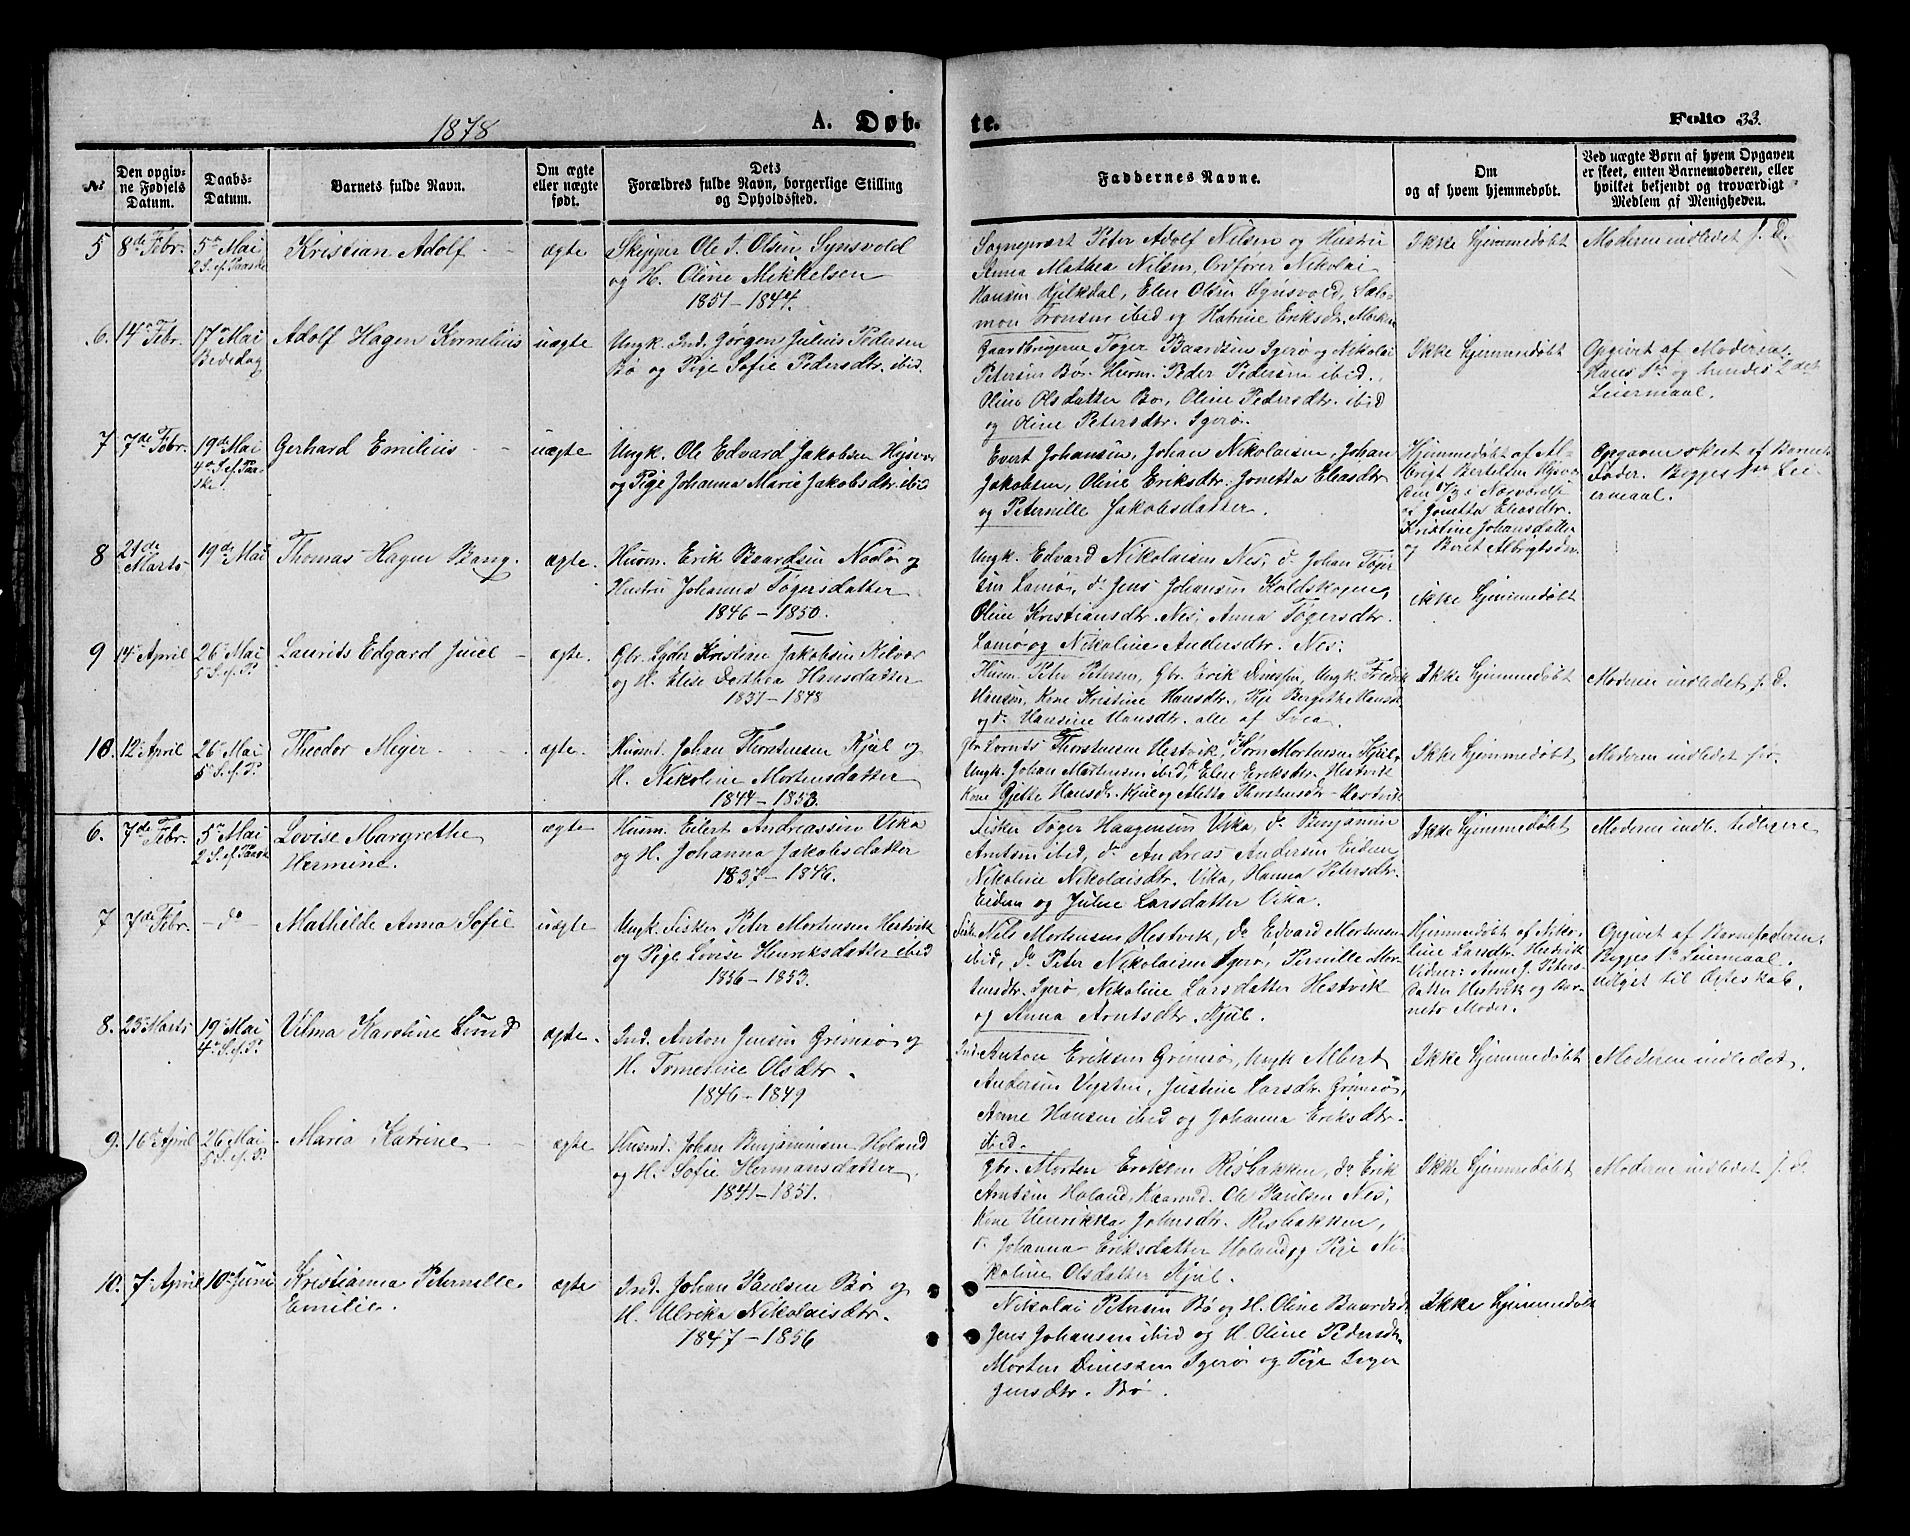 1878 A. Døb- te. Folio 33.
№
Den opgiv-
ne Fødsels
Datum.
Daabs-
Datum.
Barnets fulde Navn.
Om ægte
eller uægte
født.
Dets
Forældres fulde Navn, borgerlige Stilling
og Opholdssted.
Faddernes Navne.
Om
og af hvem hjemmedøbt.
Ved uægte Børn af hvem Opgaven
er skeet, enten Barnemoderen, eller
hvilket bekjendt og troværdigt
Medlem af Menigheden.
5 8de Febr. 5te Mai
2 S. ef. Paaske
Kristian Adolf
ægte
Skipper Ole J. Olsen Synsvold
og H. Oline Mikkelsen
1851 – 1844.
Sogneprest Peter Adolf Nilsen og Hustru
Anna Mathea Nilsen, Ordfører Nikolai
Hansen Kjelkdal, Elen Olsen Synsvold, Salo-
mon Tronsen ibid og Katrine Eriksdr.
Ikke hjemmedøbt
Moderen indledet f. D.
6. 14 Febr. 17 Mai
Bededag
Adolf Hagen Kornelius
uægte
Ungk. Ind. Jørgen Julius Pedersen
Bø og Pige Sofie Pedersdtr. ibid.
Gaardbrugerne Tøger Baardsen Igerø og Nikolai
Petersen Bø, Husm. Peder Pedersen ibid.,
Oline Olsdatter Bø, Oline Pedersdtr. ibid
og Oline Petersdtr. Igerø.
Ikke hjemmedøbt
Opgivet af Moderen.
Hans 1ste og hendes 2det
Leiermaal.
7 7de Febr. 19de Mai
4 S. ef. Paa-
ske.
Gerhard Emilius
uægte
Ungk. Ole Edvard Jakobsen Hysvær
og Pige Johanna Marie Jakobsdtr. ibid
Evert Johansen, Johan Nikolaisen, Johan
Jakobsen, Oline Eriksdtr. Jonetta Eliasdtr
og Peternille Jakobsdatter.
Hjemmedøbt af Al-
brigt Bertelsen Hysvær
den 17/3 i Nærværelse
af Jonetta Eliasdtr.
Kristine Johansdatter
og Beret Albrigtsdtr.
Opgaven skeet af Barnets
Fader. Begges 1ste Lei-
ermaal.
8 21de
Marts 19de Mai
Thomas Hagen Bang.
ægte.
Husm. Erik Baardsen Nødø og
Hustru Johanna Tøgersdatter
1846 – 1850.
Ungk. Edvard Nikolaisen Nes, do Johan Tøger-
sen Lamø, do Jens Johansen Koldskogen,
Oline Kristiansdtr. Nes, Anna Tøgersdtr.
Lamø og Nikoline Andersdtr. Nes.
ikke hjemmedøbt
9 14 April 26 Mai
5 S. ef. P.
Laurits Edgard Juel
ægte.
Gbr. Lyder Kristian Jakobsen Kilvær
og H. Elise Dorthea Hansdatter
1851 – 1848
Husm. Peter Petersen, Gbr. Erik Dinessen, Ungk. Fredrik
Hansen, Kone Kristine Hansdtr., Pige Bergithe Hansdtr
og do Hansine Hansdtr. alle af
Ikke hjemmedøbt
Moderen indledet f. D.
10. 12 April 26 Mai
5 S. ef. P.
Theodor Meyer
ægte.
Husmd. Johan Thorstensen Kjul og
H. Nikoline Mortensdatter
1844 – 1853.
Gbr. Lornts Thorstensen Hestvik, do Sørn Mortensen Kjul,
Ungk. Johan Mortensen ibid, K. Elen Eriksdtr. Hestvik
Kone Gjette Hansdr. Kjul og Aletta Thorstensdtr. Hestvik
Ikke hjemmedøbt
Moderen indledet
6. 7de Febr. 5te Mai
2 S. ef. Paaske
Lovise Margrethe
Hermine.
ægte
Husm. Eilert Andreassen Vika
og H. Johanna Jakobsdatter
1837 – 1846.
Fisker Tøger Haagensen Vika, do Benjamin
Arntsen ibid, do Andreas Andersen Eidem
Nikoline Nikolaisdtr. Vika, Hanna Petersdtr.
Eidem og Juline Larsdatter Vika.
Ikke hjemmedøbt
Moderen indl. tidligere
7 7de Febr. – do –
Mathilde Anna Sofie
uægte
Ungk. Fisker Peter Mortensen Hestvik
og Pige Lovise Henriksdatter ibid
1856 – 1853.
Fisker Nils Mortensen Hestvik, do Edvard Mortensen
ibid, do Peter Nikolaisen Igerø, Pernille Mor-
tensdtr. Igerø, Nikoline Larsdatter Hestvik
og Anna Arntsdtr. Kjul.
Hjemmedøbt af Niko-
line Larsdtr. Hestvik
Vidner: Anne J. Peters-
datter Hestvik og Bar-
nets Moder.
Opgivet af Barnefaderen.
Begges 1ste Leiermaal.
udlyst til Ægteskab.
8. 23 Marts 19 Mai
4 S. ef. P.
Vilma Karoline Lund
ægte.
Ind. Anton Jensen Grimsø og
H. Tomesine Olsdtr.
1846 – 1849
Ind. Anton Eriksen Grimsø, Ungk Albert
Andersen Vegsten, Justine Larsdtr. Grimsø,
Anne Hansen ibid og Johanna Eriksdtr.
ibid.
Ikke hjemmedøbt
Moderen indledet.
9. 16 April 26 Mai
5 S. ef. P.
Maria Katrine
ægte
Husmd. Johan Benjaminsen Holand
og H. Sofie Hermansdatter.
1841 – 1851.
Gbr. Morten Eriksen Resbakken, do Erik
Arntsen Holand, Kaarmd. Ole Paulsen Nes,
Kone Henrikka Johnsdtr. Resbakken,
do Johanna Eriksdatter Holand og Pige Ni-
koline Olsdatter Kjul.
Ikke hjemmedøbt
Moderen indledet f. d.
10. 7 April 10 Juni
Kristianna Peternelle
Emilie.
ægte
Ind. Johan Paulsen Bø og
H. Ulrika Nikolaisdtr.
1847 – 1856
Nikolai Petersen Bø og H. Oline Baardsdtr
Jens Johansen ibid og H. Oline Pedersdtr.
Morten Dinessen Igerø og Pige Inger
Jensdtr. Bø.
Ikke hjemmedøbt